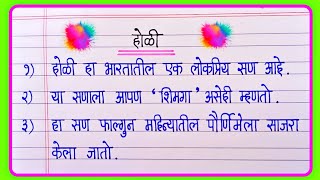 होळी
१) होळी हा भारतातील एक लोकप्रिय सण आहे.
२) या सणाला आपण ‘शिमगा’ असेही म्हणतो.
३) हा सण फाल्गुन महिन्यातील पौर्णिमेला साजरा
केला जातो.